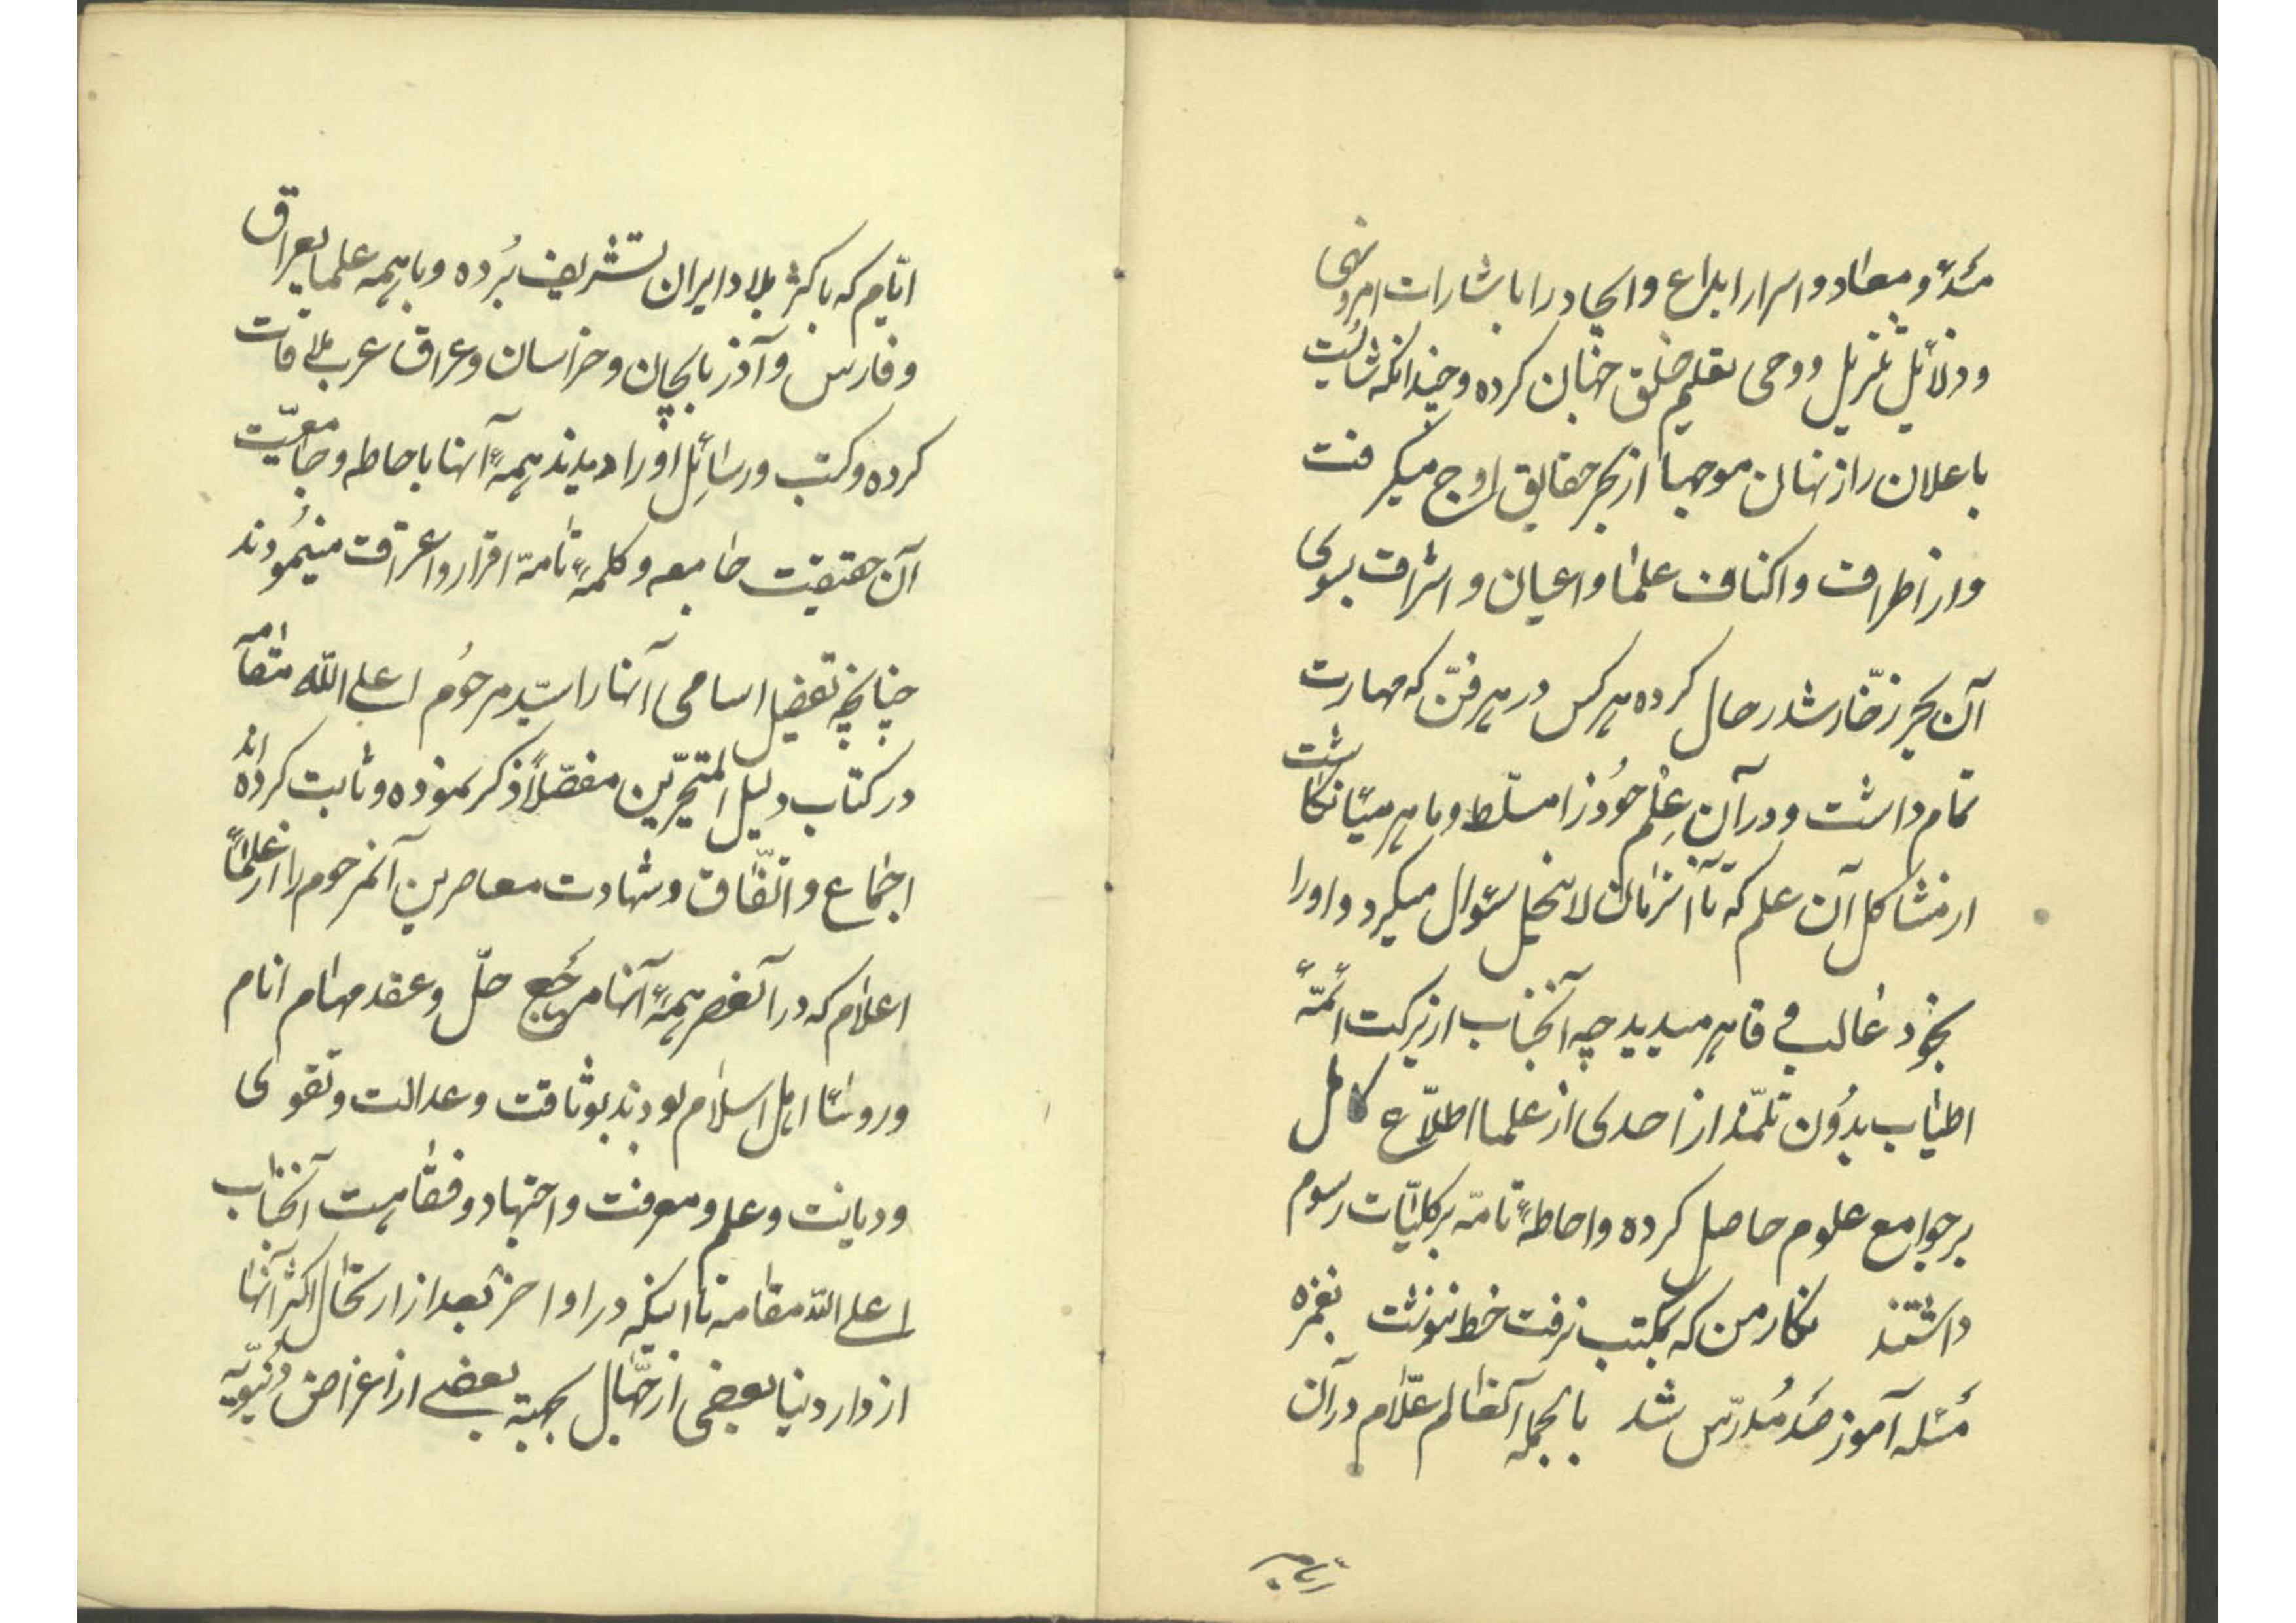 مبدء و معاد و اسرار ابداع و ایجاد را باشارات امر و نهی
و دلائل تنزیل و وحی بقلم خلق جهان کرده و چندانکه شایست
باعلان راز نهان موجها از بحر حقایق اوج میگرفت
و از اطراف و اکناف علما و اعیان و اشراف بسوی
آن بحر زخّار شد رحال کرده هر کس در هر فنّ که مهارت
تمام داشت و در آن علم خود را مسلّط و ماهر می انگاشت
از مشاکل آن علم که تا آنزمان لا ینحل سئوال میکرد و او را
بخود غالب و قاهر میدید چه آنجناب از برکت ائمّهٔ
اطیاب بدون تلمّذ از احدی از علما اطلاع کامل
بر جوامع علوم حاصل کرده و احاطهٔ تامّه بر کلیّات رسوم
داشتند نکار من که بمکتب نرفت خط ننوشت بغمزه
مسئله آموز صد مدرّس شد بالجمله آنعالم علّام در آن
ایّام که باکثر بلاد ایران تشریف برده و با همه علمای عراق
و فارس و آذربایجان و خراسان و عراق عرب ملاقات
کرده و کتب و رسائل او را دیدند همهٔ آنها باحاطه و جامعیّت
آن حقیقت جامعه و کلمهٔ تامّه اقرار و اعتراف مینمودند
چنانچه تفصیل اسامی آنها را سیّد مرحوم اعلی الله مقامه
در کتاب دلیل المتحیّرین مفصّلاً ذکر نموده و ثابت کرده اند
اجماع و اتّفاق و شهادت معاصرین آنمرحوم را از علمآء
اعلام که در آنعصر همهٔ آنها مرجع حلّ و عقد مهام انام
و روسآء اهل اسلام بودند بوثاقت و عدالت و تقوی
و دیانت و علم و معرفت و اجتهاد و فقاهت آنجناب
اعلی الله مقامه تا اینکه در اواخر بعد از ارتحال اکثر آنها
از دار دنیا بعضی از جهّال بجهة بعضی از اغراض دنیویّه